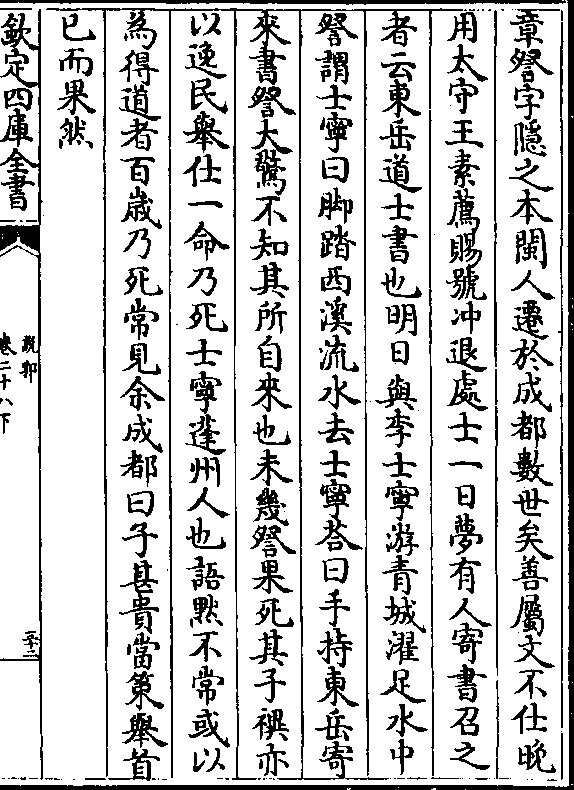 章詧字隱之本閩人遷於成都數世矣善屬文不仕晚
用太守王素薦賜號冲退處士一日夢有人寄書召之
者云東岳道士書也明日與李士寧游青城濯足水中
詧謂士寧曰脚踏西溪流水去士寧荅曰手持東岳寄
來書詧大驚不知其所自來也未幾詧果死其子禩亦
以逸民舉仕一命乃死士寧蓬州人也語黙不常或以
為得道者百歲乃死常見余成都曰子甚貴當策舉首
已而果然
欽定四庫全書
說郛
卷二十八下